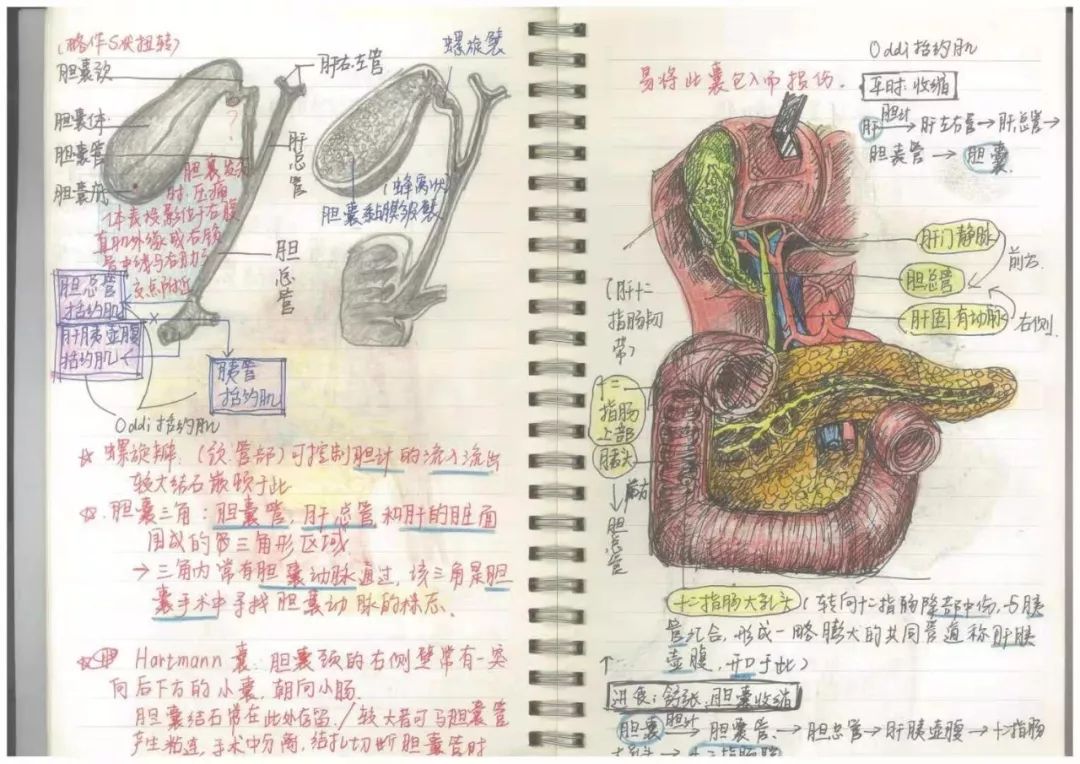 (略作S状扭转)
胆囊颈
胆囊体
胆囊管
胆囊底
肝右左管
肝总管
胆总管
螺旋襞
(蜂窝状)
胆囊黏膜皱襞
胆囊发炎
时,压痛
体表投影位于右腹
直肌外缘或右锁
骨中线与右肋弓
交点附近
?
胆总管
括约肌
肝胰壶腹
括约肌
胰管
括约肌
Oddi括约肌
☆ 螺旋瓣.(颈、管部)可控制胆汁的流入流出
较大结石嵌顿于此
☆.胆囊三角:胆囊管,肝总管和肝的脏面
围成的三角形区域
→三角内常有胆囊动脉通过,该三角是胆
囊手术中寻找胆囊动脉的标志.
Hartmann囊:胆囊颈的右侧壁常有一突
向后下方的小囊,朝向小肠.
胆囊结石常在此处存留./较大者可与胆囊管
产生粘连,手术中分离,结扎切断胆囊管时
易将此囊包入而损伤.
Oddi括约肌
平时:收缩
肝 胆汁→肝左右管→肝总管→
胆囊管→胆囊
肝门静脉
胆总管
肝固有动脉
前方.
右侧
(肝十二指肠韧带)
十二
指肠
上部
胰头
↓前方
胆总管
十二指肠大乳头(转向十二指肠降部中份,与胰
管汇合,形成一略膨大的共同管道称肝胰
壶腹,开口于此)
↑
进食:舒张,胆囊收缩
胆囊 胆汁→胆囊管→胆总管→肝胰壶腹→十二指肠